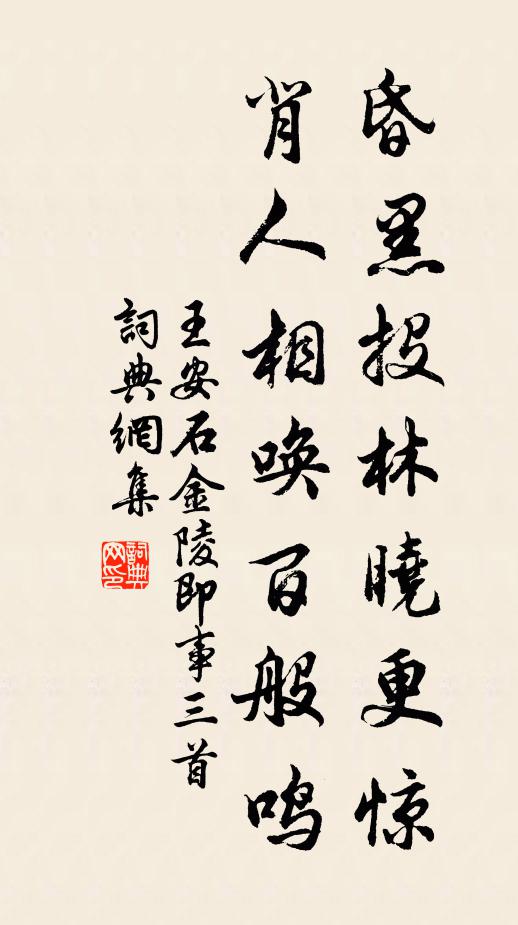 昏黑投林曉更惊
背人相唤百般鸣
王安石金陵即事三首
詞典網集
詞典網印